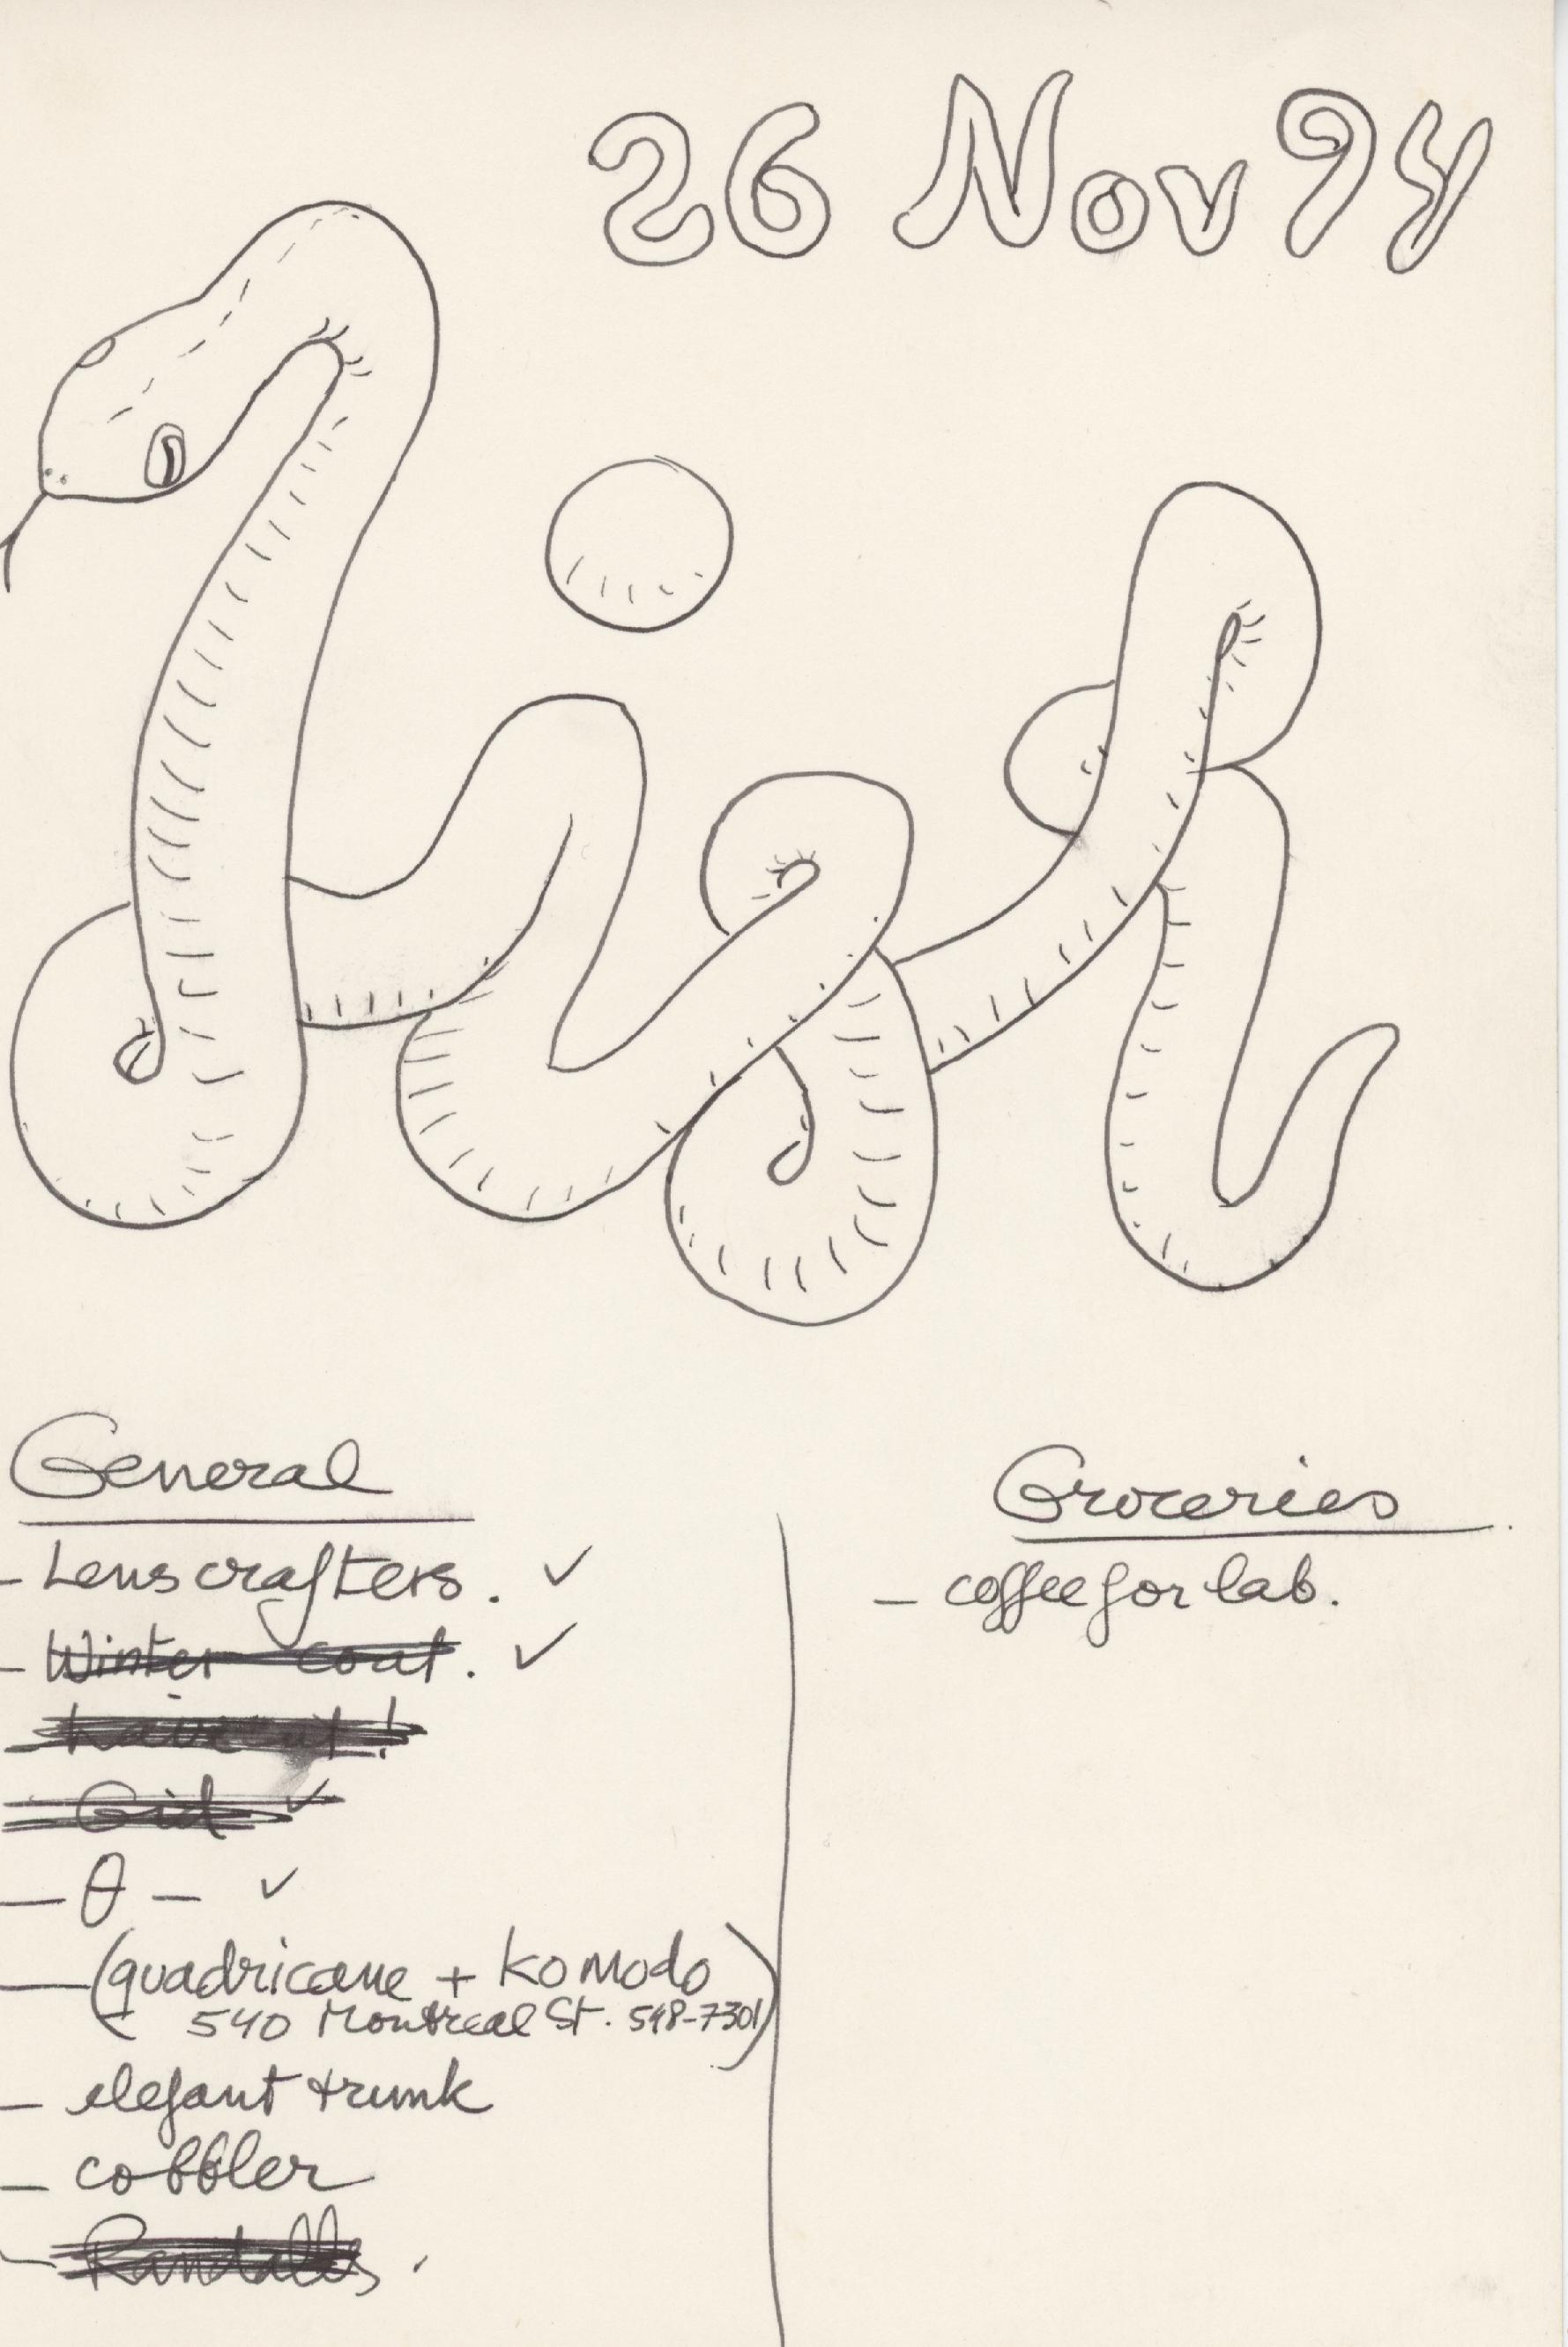 26 Nov 94
List
General
- Lenscrafters. ✓
- Winter coat. ✓
- haircut!
- Gid ✓
- θ - ✓
- (quadricane + komodo
540 Montreal St. 548-7301)
- elegant trunk
- cobbler
- Randalls.
Groceries
- coffee for lab.